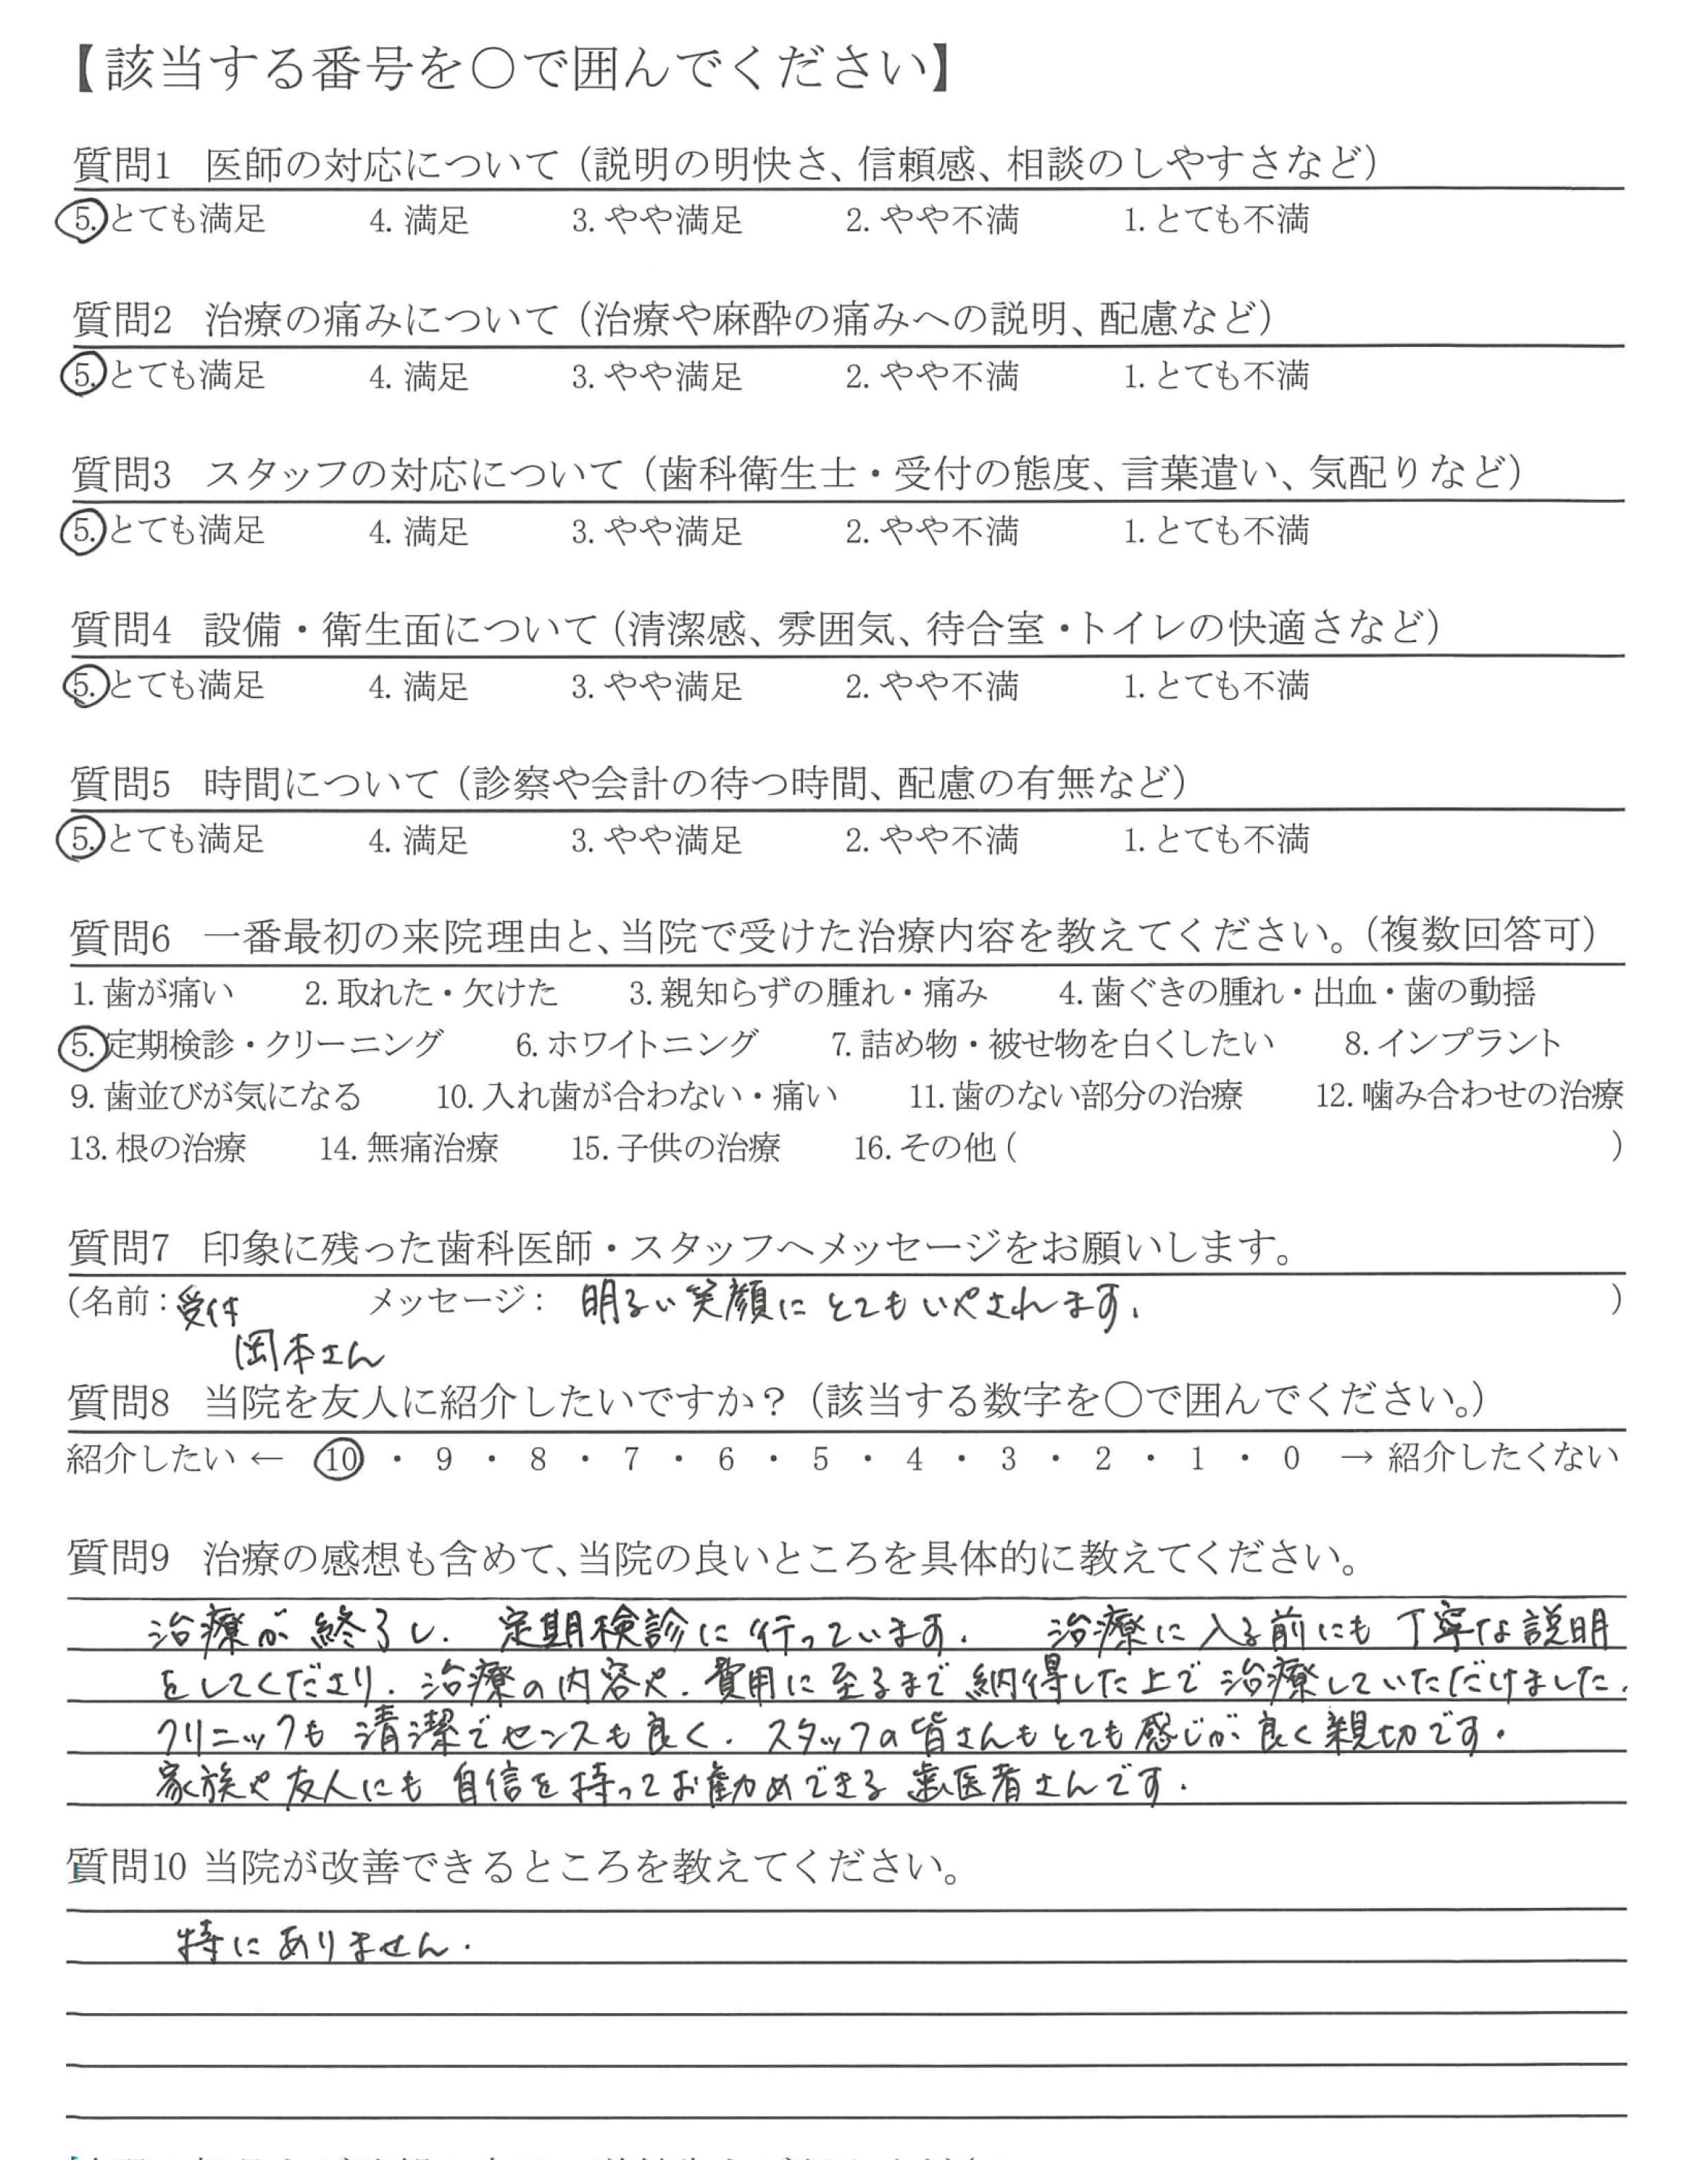 【該当する番号を〇で囲んでください】
質問1 医師の対応について（説明の明快さ、信頼感、相談のしやすさなど）
5. とても満足 4. 満足 3. やや満足 2. やや不満 1. とても不満
質問2 治療の痛みについて（治療や麻酔の痛みへの説明、配慮など）
5. とても満足 4. 満足 3. やや満足 2. やや不満 1. とても不満
質問3 スタッフの対応について（歯科衛生士・受付の態度、言葉遣い、気配りなど）
5. とても満足 4. 満足 3. やや満足 2. やや不満 1. とても不満
質問4 設備・衛生面について（清潔感、雰囲気、待合室・トイレの快適さなど）
5. とても満足 4. 満足 3. やや満足 2. やや不満 1. とても不満
質問5 時間について（診察や会計の待つ時間、配慮の有無など）
5. とても満足 4. 満足 3. やや満足 2. やや不満 1. とても不満
質問6 一番最初の来院理由と、当院で受けた治療内容を教えてください。（複数回答可）
1. 歯が痛い 2. 取れた・欠けた 3. 親知らずの腫れ・痛み 4. 歯ぐきの腫れ・出血・歯の動揺
5. 定期検診・クリーニング 6. ホワイトニング 7. 詰め物・被せ物を白くしたい 8. インプラント
9. 歯並びが気になる 10. 入れ歯が合わない・痛い 11. 歯のない部分の治療 12. 噛み合わせの治療
13. 根の治療 14. 無痛治療 15. 子供の治療 16. その他 ( )
質問7 印象に残った歯科医師・スタッフへメッセージをお願いします。
(名前：受付 メッセージ： 明るい笑顔にとてもいやされます。 )
岡本さん
質問8 当院を友人に紹介したいですか？（該当する数字を〇で囲んでください。）
紹介したい ← 10 ・ 9 ・ 8 ・ 7 ・ 6 ・ 5 ・ 4 ・ 3 ・ 2 ・ 1 ・ 0 → 紹介したくない
質問9 治療の感想も含めて、当院の良いところを具体的に教えてください。
治療が終了し、定期検診に行っています。 治療に入る前にも丁寧な説明
をしてくださり、治療の内容や、費用に至るまで納得した上で治療していただけました。
クリニックも清潔でセンスも良く、スタッフの皆さんもとても感じが良く親切です。
家族や友人にも自信を持ってお勧めできる歯医者さんです。
質問10 当院が改善できるところを教えてください。
特にありません。